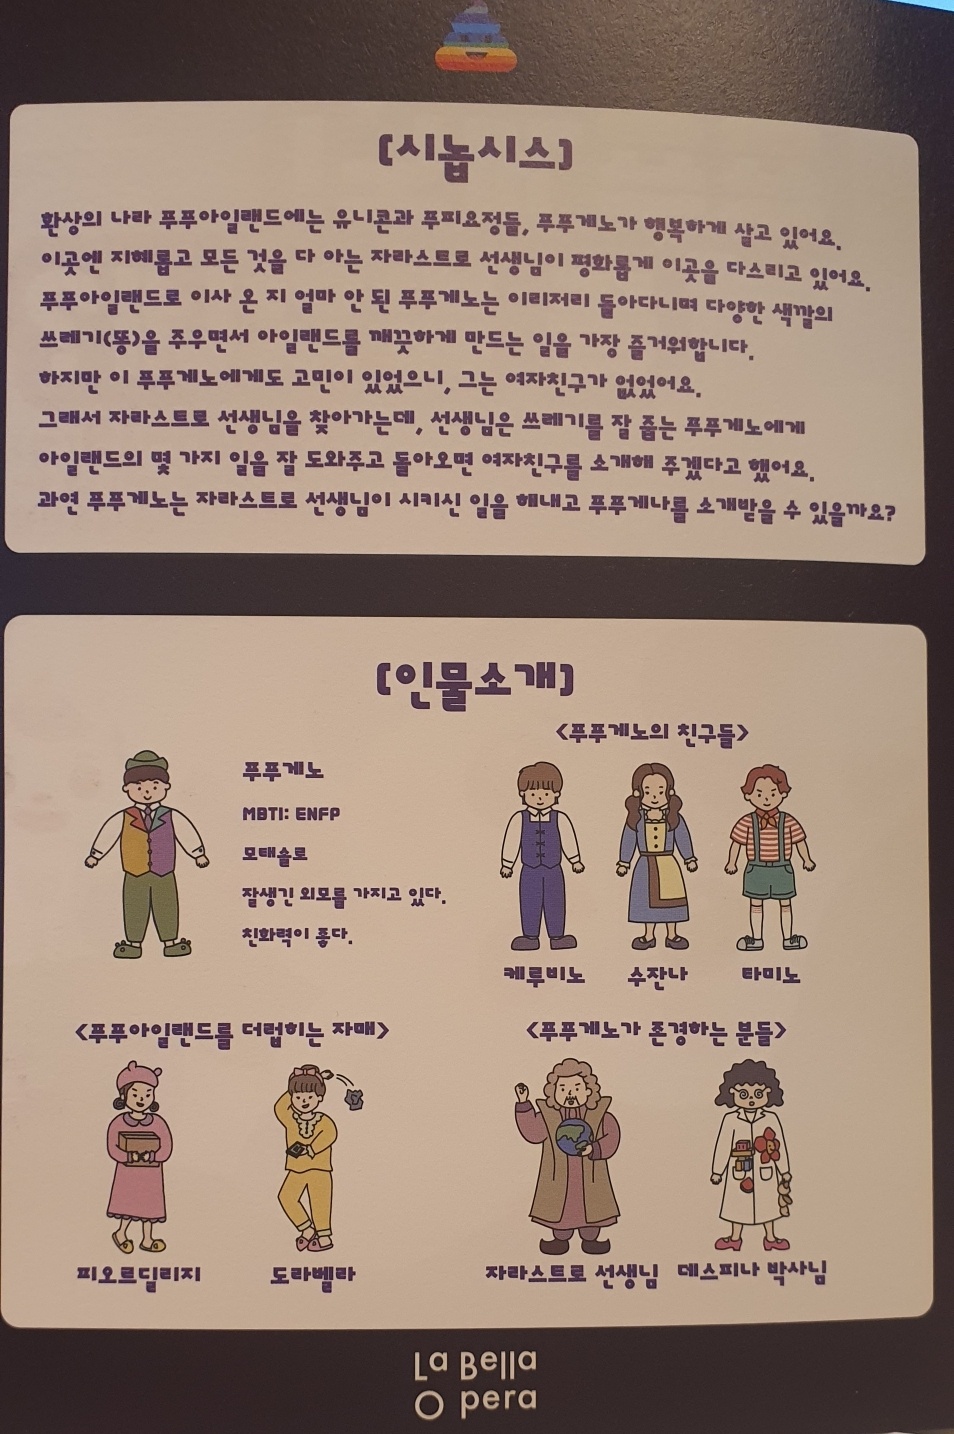 [시놉시스]
환상의 나라 푸푸아일랜드에는 유니콘과 푸피요정들, 푸푸게노가 행복하게 살고 있어요.
이곳엔 지혜롭고 모든 것을 다 아는 자라스트로 선생님이 평화롭게 이곳을 다스리고 있어요.
푸푸아일랜드로 이사 온 지 얼마 안 된 푸푸게노는 이리저리 돌아다니며 다양한 색깔의
쓰레기(똥)을 주우면서 아일랜드를 깨끗하게 만드는 일을 가장 즐거워합니다.
하지만 이 푸푸게노에게도 고민이 있었으니, 그는 여자친구가 없었어요.
그래서 자라스트로 선생님을 찾아가는데, 선생님은 쓰레기를 잘 줍는 푸푸게노에게
아일랜드의 몇 가지 일을 잘 도와주고 돌아오면 여자친구를 소개해 주겠다고 했어요.
과연 푸푸게노는 자라스트로 선생님이 시키신 일을 해내고 푸푸게나를 소개받을 수 있을까요?
[인물소개]
푸푸게노
MBTI: ENFP
모태솔로
잘생긴 외모를 가지고 있다.
친화력이 좋다.
<푸푸게노의 친구들>
케루비노 수잔나 타미노
<푸푸아일랜드를 더럽히는 자매>
피오르딜리지 도라벨라
<푸푸게노가 존경하는 분들>
자라스트로 선생님 데스피나 박사님
La Bella
Opera